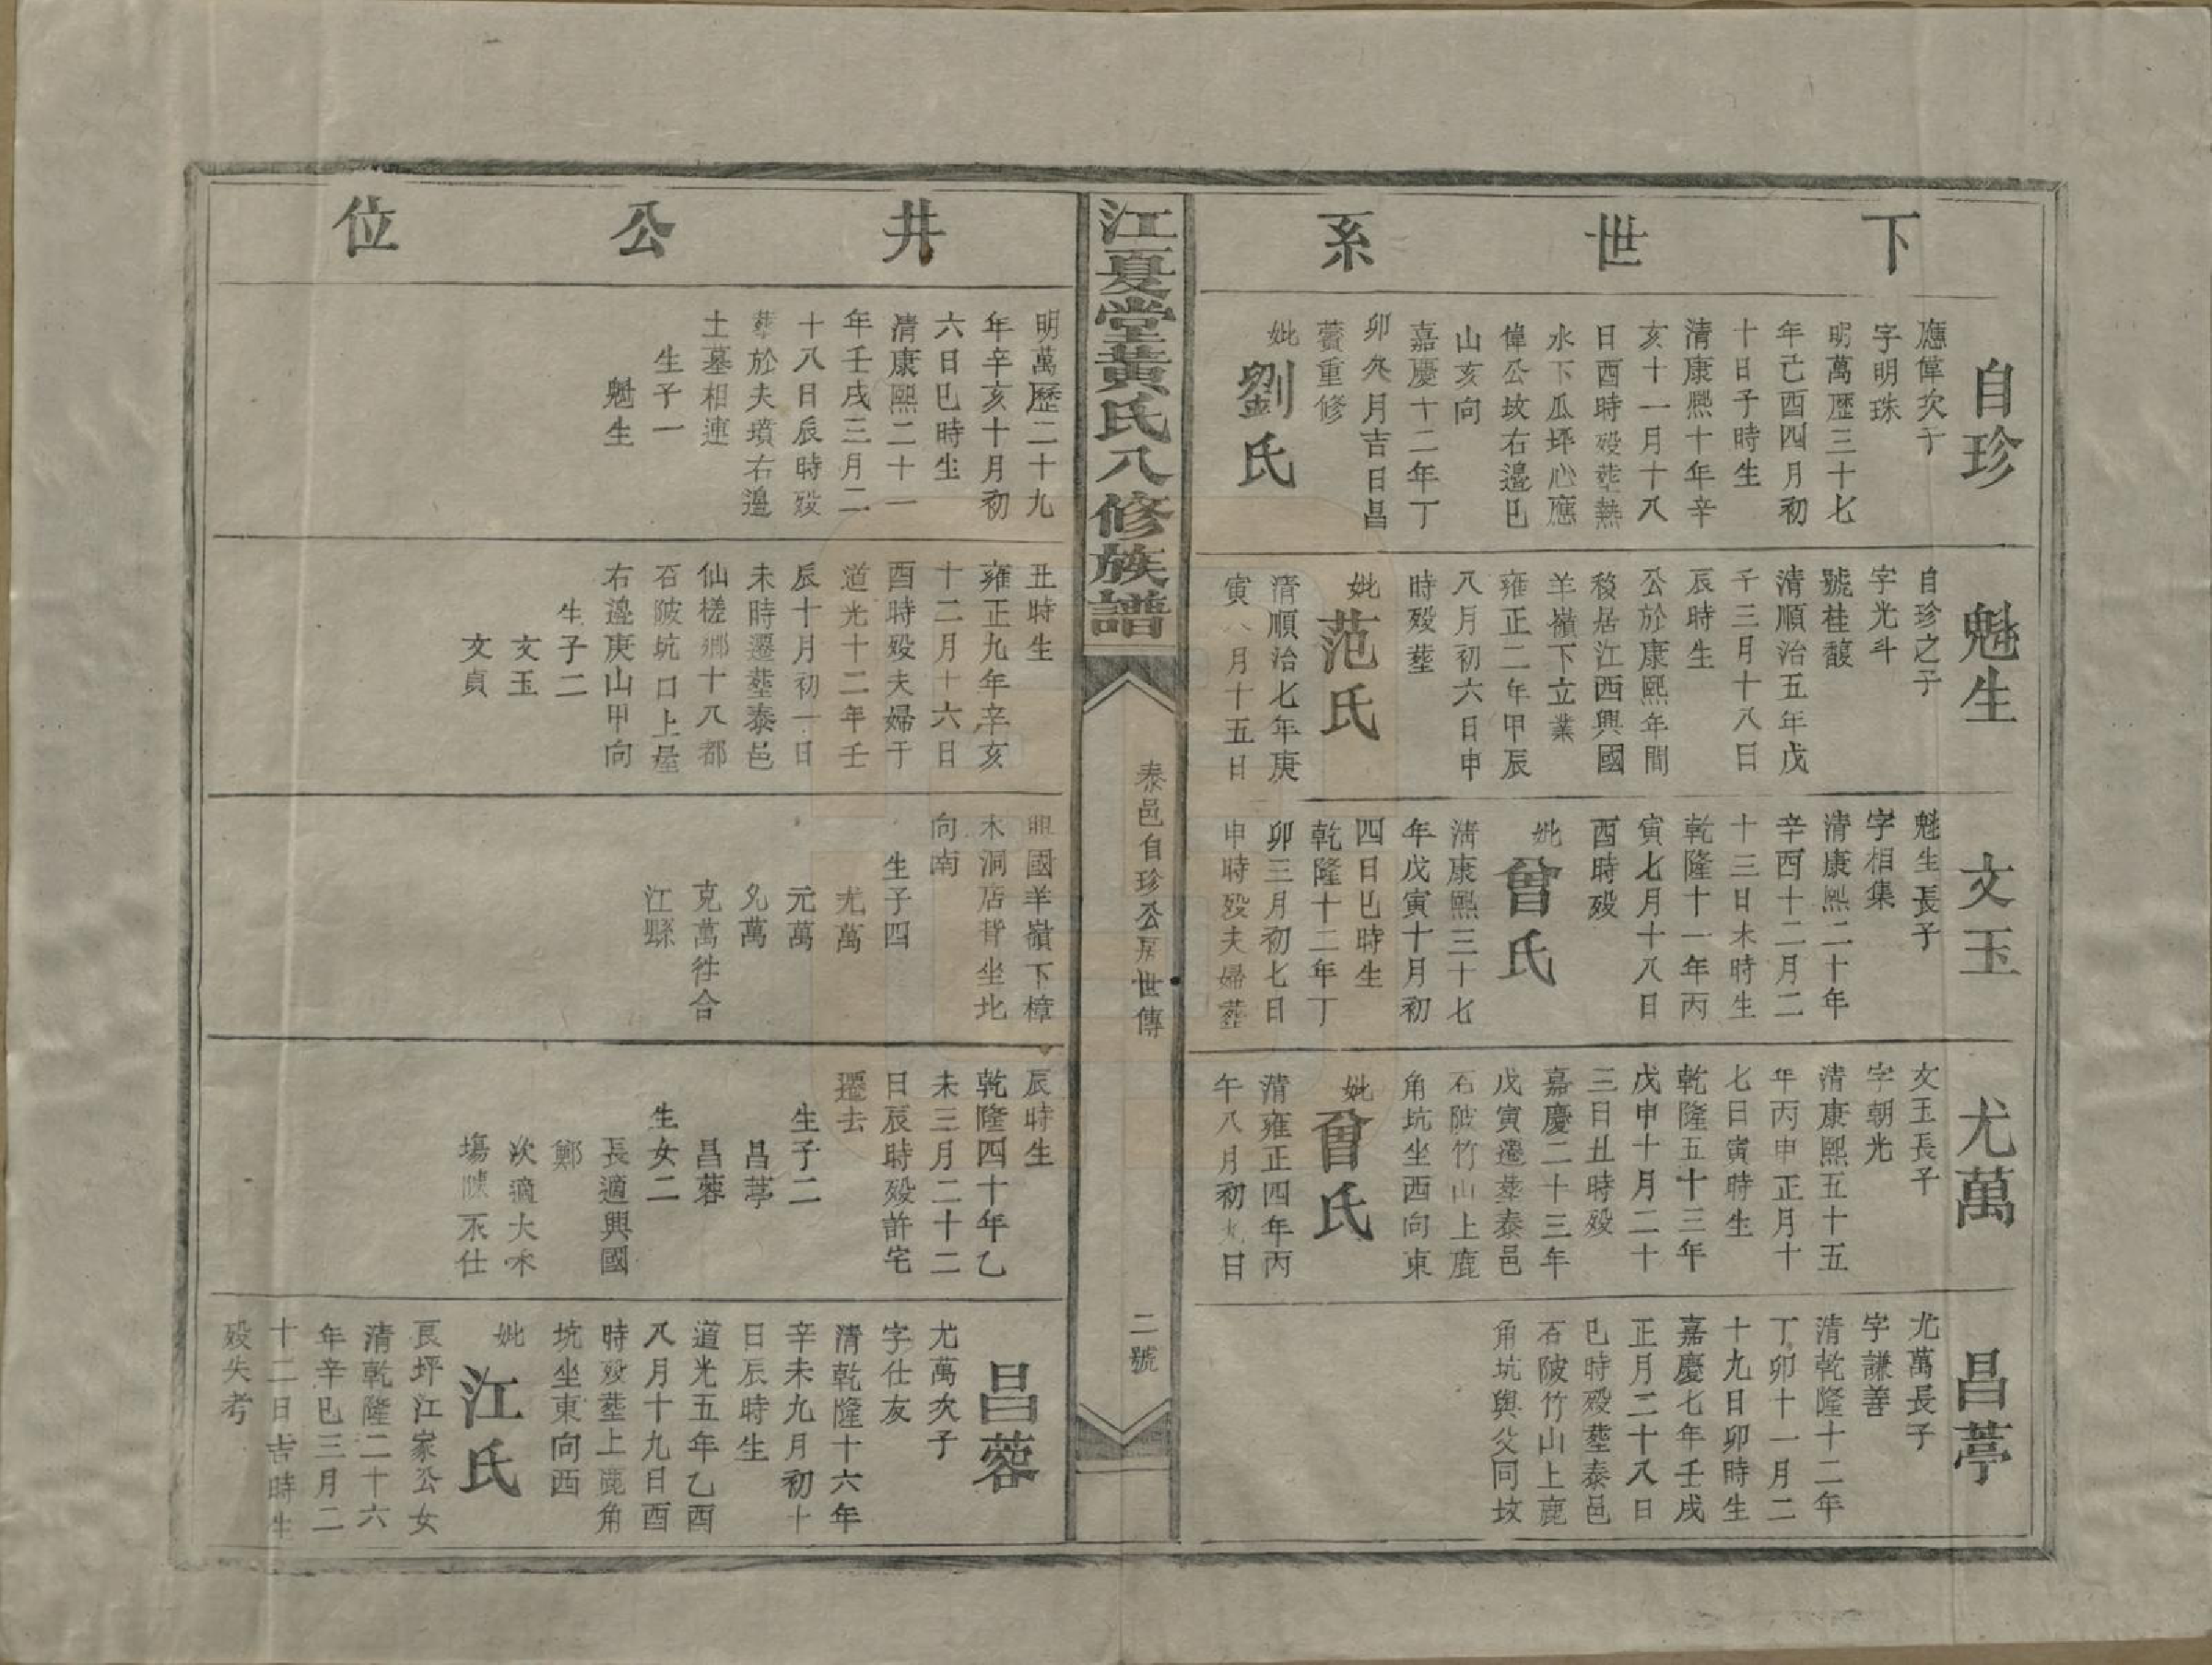 下世系
自珍
應偉次子
字明珠
明萬歷三十七
年己酉四月初
十日子時生
清康熙十年辛
亥十一月十八
日酉時歿塟熱
水下瓜坪心應
偉公坟右邉巳
山亥向
嘉慶十二年丁
卯八月吉日昌
重修
妣
劉氏
魁生
自珍之子
字光斗
號桂馥
清順治五年戊
子三月十八日
辰時生
公於康熙年間
移居江西興國
羊嶺下立業
雍正二年甲辰
八月初六日申
時歿塟
妣
范氏
清順治七年庚
寅八月十五日
文玉
魁生長子
字相集
清康熙二十年
辛酉十二月二
十三日未時生
乾隆十一年丙
寅七月十八日
酉時歿
妣
曾氏
清康熙三十七
年戊寅十月初
四日巳時生
乾隆十二年丁
卯三月初七日
申時歿夫婦塟
尤萬
文玉長子
字朝光
清康熙五十五
年丙申正月十
七日寅時生
乾隆五十三年
戊申十月二十
三日丑時歿
嘉慶二十三年
戊寅遷塟泰邑
石陂竹山上鹿
角坑坐西向東
妣
曾氏
清雍正四年丙
午八月初九日
昌葶
尤萬長子
字謙善
清乾隆十二年
丁卯十一月二
十九日卯時生
嘉慶七年壬戌
正月二十八日
巳時歿塟泰邑
石陂竹山上鹿
角坑與父同坟
江夏堂黃氏八修族譜
泰邑自珍公房世傳
二號
井公位
明萬歷二十九
年辛亥十月初
六日巳時生
清康熙二十一
年壬戌三月二
十八日辰時歿
塟於夫墳右邉
土墓相連
生子一
魁生
丑時生
雍正九年辛亥
十二月十六日
酉時歿夫婦于
道光十二年壬
辰十月初一日
未時遷塟泰邑
仙槎鄉十八都
石陂坑口上屋
右邉庚山甲向
生子二
文玉
文貞
興國羊嶺下樟
木洞店背坐北
向南
生子四
尤萬
元萬
允萬
克萬徃合
江縣
辰時生
乾隆四十年乙
未三月二十二
日辰時歿許宅
遷去
生子二
昌葶
昌蓉
生女二
長適興國
鄭
次適大禾
塲陳丕仕
昌蓉
尤萬次子
字仕友
清乾隆十六年
辛未九月初十
日辰時生
道光五年乙酉
八月十九日酉
時歿塟上鹿角
坑坐東向西
妣
江氏
長坪江家公女
清乾隆二十六
年辛巳三月二
十二日吉時生
歿失考